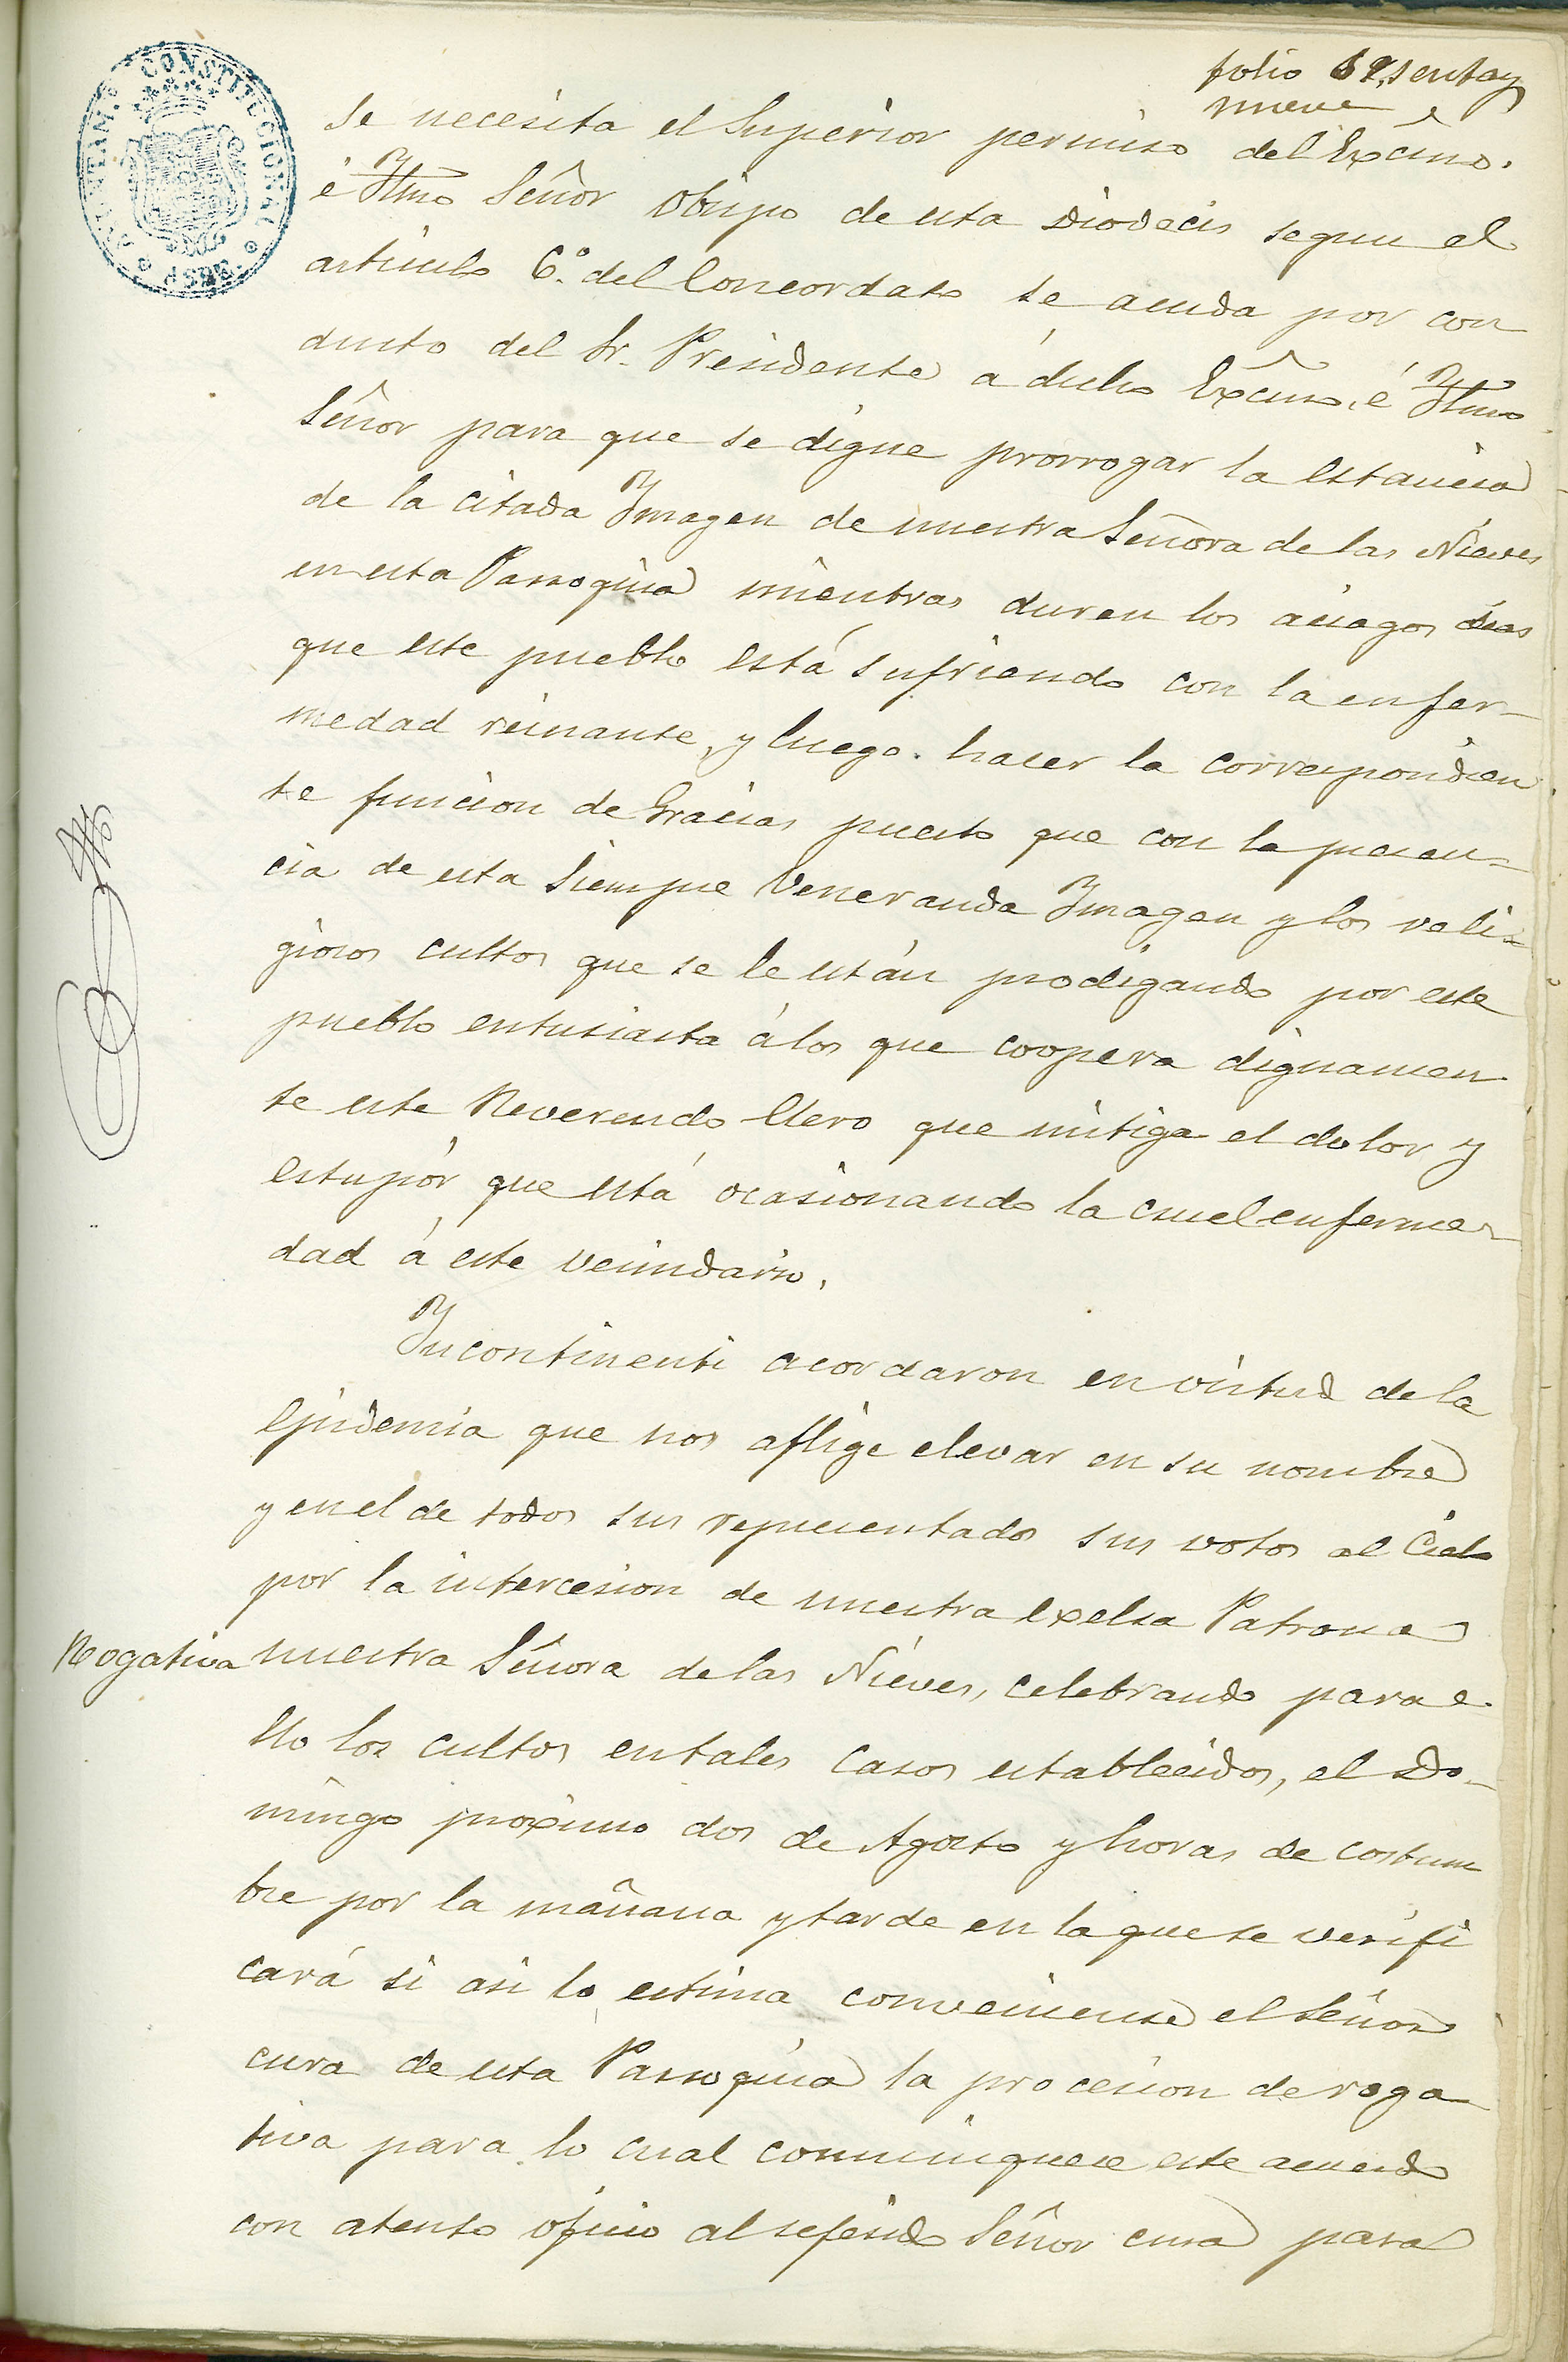 folio 69, sentay
nueve
AYUNTAM.º CONSTITUCIONAL
ASPE
se necesita el Superior permiso del Excmo.
é Ilmo Señor Obispo de esta Diodecis segun el
articulo 6.º del Concordato se acuda por con
ducto del Sr. Presidente á dicho Excmo. é Ilmo
Señor para que se digne prorrogar la estancia
de la citada Imagen de nuestra Señora de las Nieves
en esta Parroquia mientras duren los aciagos dias
que este pueblo está sufriendo con la enfer-
medad reinante, y luego hacer la correspondien
te funcion de Gracias puesto que con la presen-
cia de esta Siempre Veneranda Imagen y los reli-
giosos cultos que se le están prodigando por este
pueblo entusiasta á los que coopera dignamen-
te este Reverendo Clero que mitiga el dolor y
estupór que está ocasionando la cruel enferme-
dad á este vecindario.
Incontinenti acordaron en virtud de la
epidemia que nos aflige elevar en su nombre
y en el de todos sus representados sus votos al Cielo
por la intercesion de nuestra excelsa Patrona
Rogativa
nuestra Señora de las Nieves, celebrando para e-
llo los cultos en tales casos establecidos, el Do-
mingo proximo dos de Agosto y horas de costum
bre por la mañana y tarde en la que se verifi
cará si asi lo estima conveniente el Señor
cura de esta Parroquia la procesion de roga
tiva para lo cual comuniquese este acuerdo
con atento oficio al referido Señor cura para